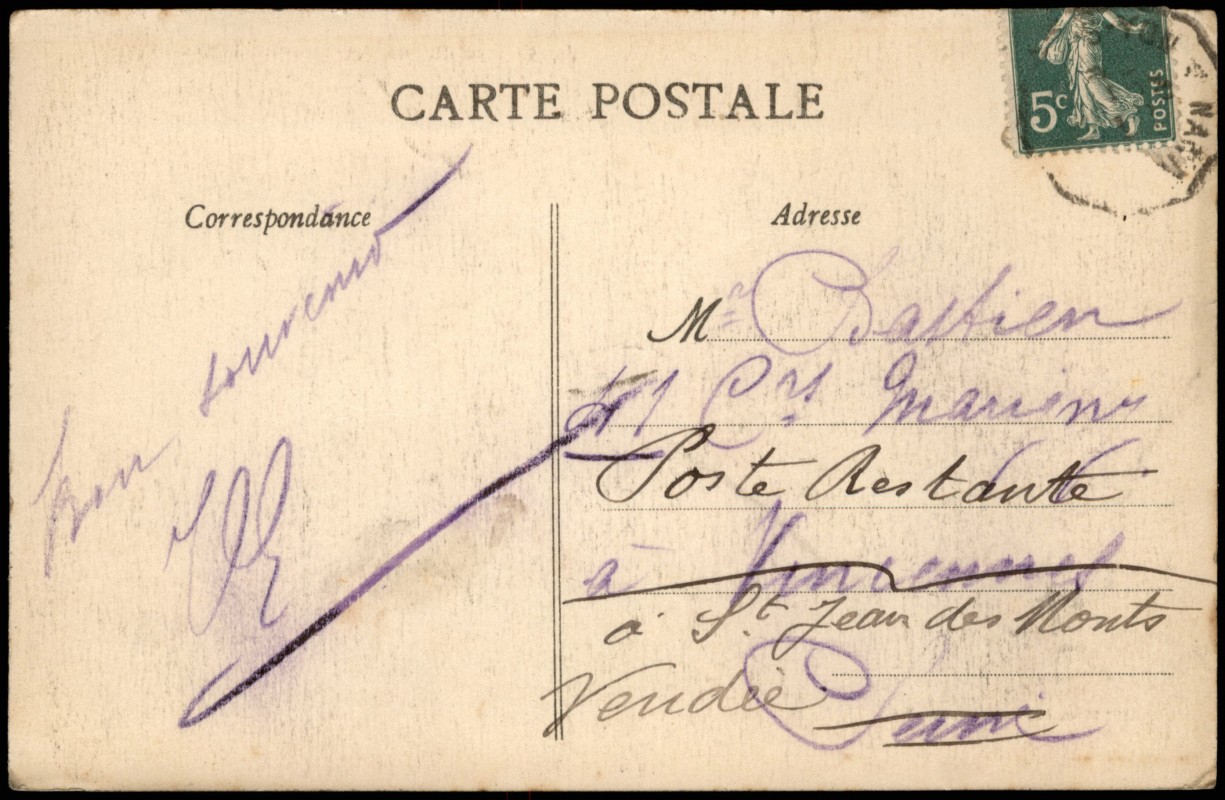 CARTE POSTALE
5c
POSTES
Correspondance
Bon souvenir
Adresse
Mr Bastien
Crs Marigny
Poste Restante
à Vincennes
à St Jean des Monts
Vendée
Seine